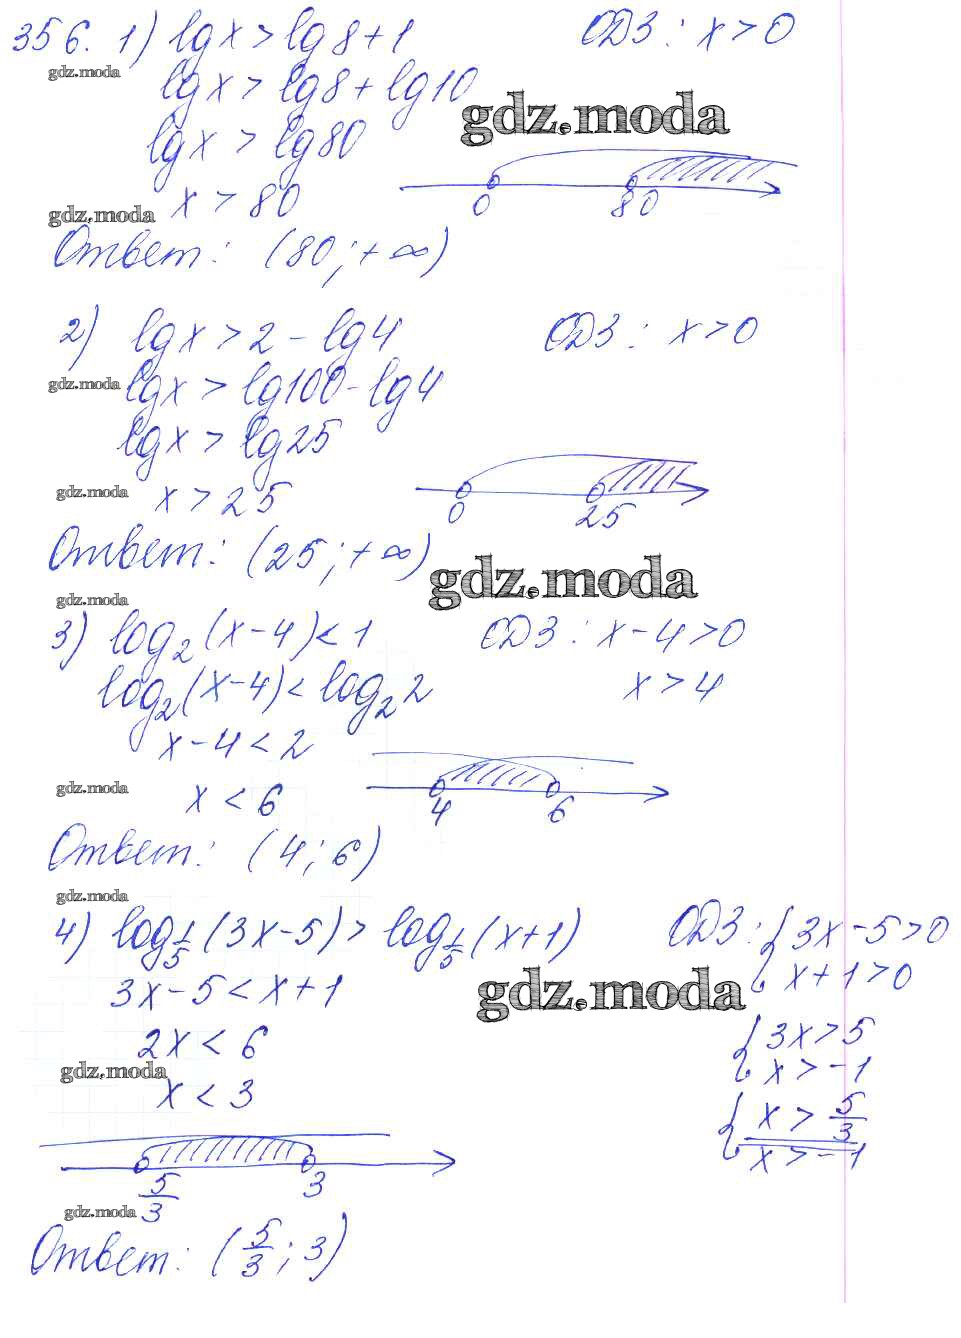 356. 1) lg x > lg 8 + 1 ОДЗ: x > 0
gdz.moda
lg x > lg 8 + lg 10
gdz.moda
lg x > lg 80
x > 80
0 80
gdz.moda
Ответ: (80; +∞)
2) lg x > 2 - lg 4 ОДЗ: x > 0
gdz.moda
lg x > lg 100 - lg 4
lg x > lg 25
gdz.moda
x > 25
0 25
Ответ: (25; +∞)
gdz.moda
gdz.moda
3) log₂(x - 4) < 1 ОДЗ: x - 4 > 0
log₂(x - 4) < log₂ 2 x > 4
x - 4 < 2
gdz.moda
x < 6
4 6
Ответ: (4; 6)
gdz.moda
4) log_{1/5}(3x - 5) > log_{1/5}(x + 1) ОДЗ: { 3x - 5 > 0
x + 1 > 0
3x - 5 < x + 1
gdz.moda
2x < 6
{ 3x > 5
x > -1
gdz.moda
x < 3
{ x > 5/3
x > -1
5/3 3
gdz.moda
Ответ: (5/3; 3)